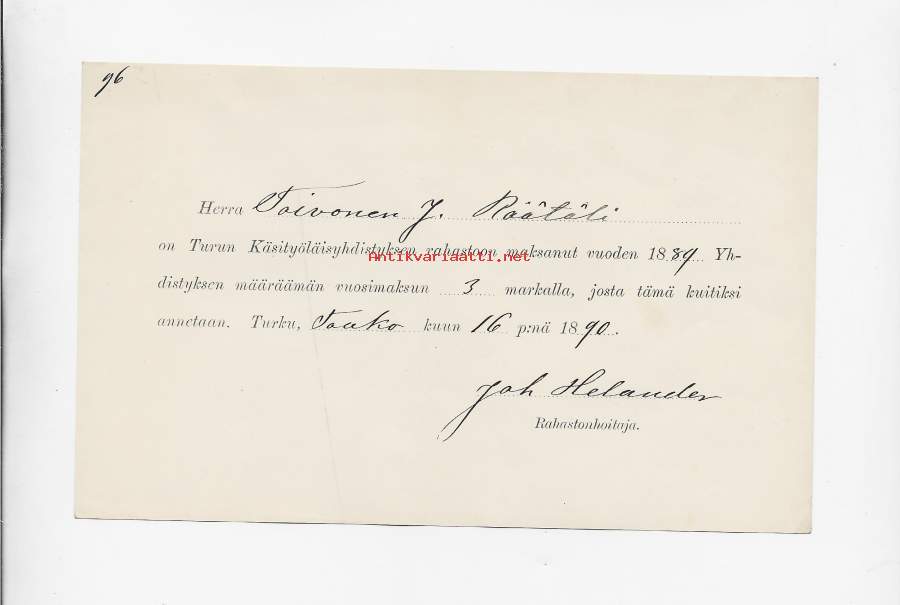 96
Herra Toivonen J. Räätäli
on Turun Käsityöläisyhdistyksen rahastoon maksanut vuoden 1889 Yh-
Antikvariaatti.net
distyksen määräämän vuosimaksun 3 markalla, josta tämä kuitiksi
annetaan. Turku, Touko kuun 16 p:nä 1890.
Joh Helander
Rahastonhoitaja.